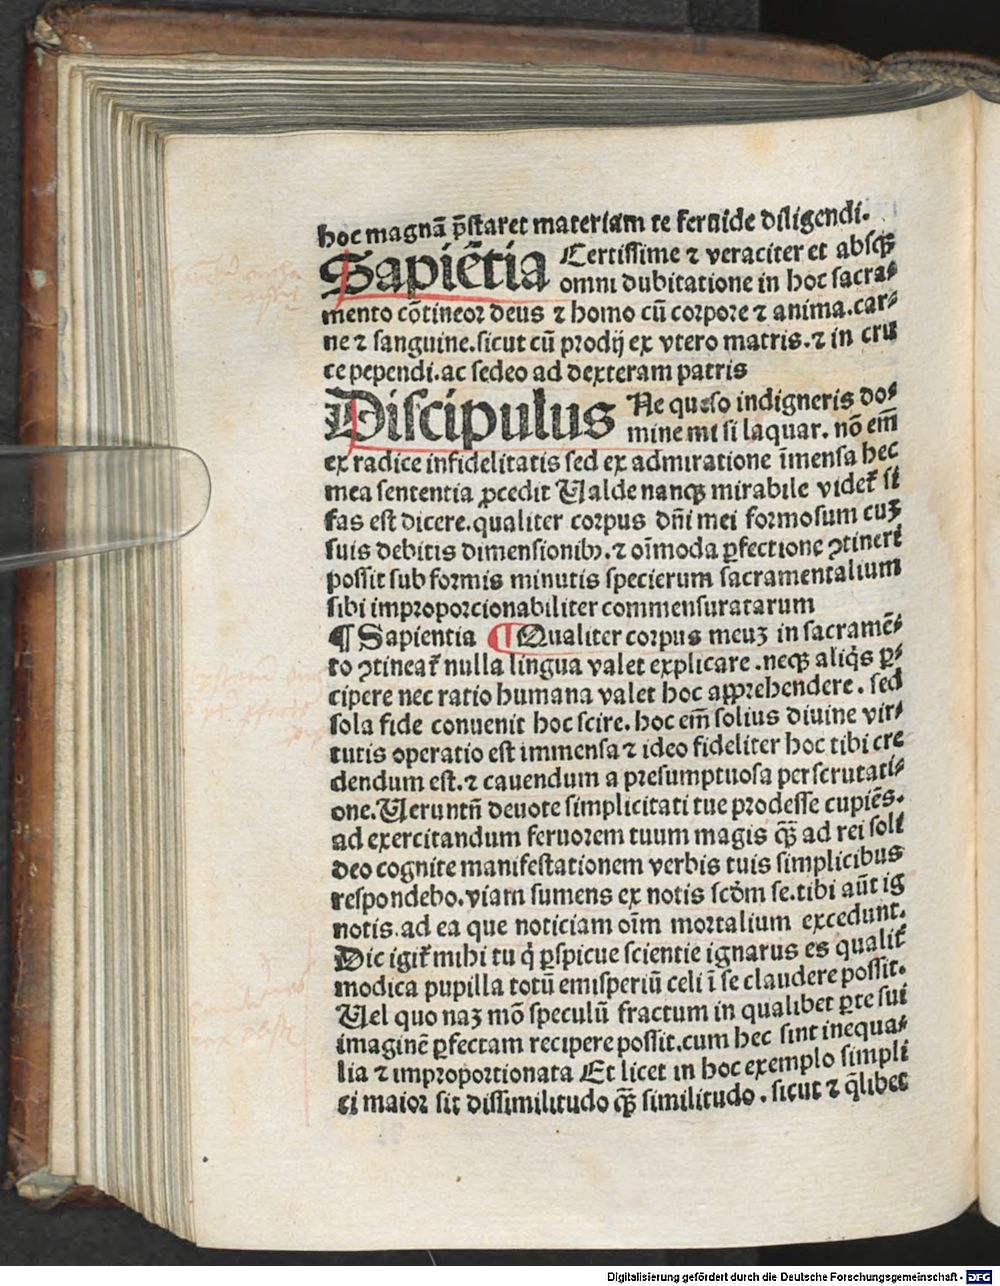 hoc magnā p̄staret materiam te feruide diligendi.
Sapiētia Certissime ⁊ veraciter et absqꝫ
omni dubitatione in hoc sacra⸗
mento cōtineor deus ⁊ homo cū corpore ⁊ anima.car⸗
ne ⁊ sanguine.sicut cū prodij ex vtero matris.⁊ in cru
ce pependi.ac sedeo ad dexteram patris
Discipulus Ne queso indigneris do⸗
mine mi si laquar. nō em̄
ex radice infidelitatis sed ex admiratione īmensa hec
mea sententia ꝓcedit Ualde nanqꝫ mirabile videt̄ si
fas est dicere.qualiter corpus dn̄i mei formosum cuꝫ
suis debitis dimensionibꝰ.⁊ oīmoda ꝑfectione ꝯtineri
possit sub formis minutis specierum sacramentalium
sibi improporcionabiliter commensuratarum
¶ Sapientia ¶ Qualiter corpus meuꝫ in sacramē⸗
to ꝯtineat̄ nulla lingua valet explicare .neqꝫ aliq̄s ꝑ⸗
cipere nec ratio humana valet hoc apprehendere. sed
sola fide conuenit hoc scire. hoc em̄ solius diuine vir⸗
tutis operatio est immensa ⁊ ideo fideliter hoc tibi cre
dendum est.⁊ cauendum a presumptuosa perscrutati⸗
one.Ueruntn̄ deuote simplicitati tue prodesse cupiēs.
ad exercitandum feruorem tuum magis qꝫ̄ ad rei soli
deo cognite manifestationem verbis tuis simplicibus
respondebo.viam sumens ex notis scd̄m se.tibi aūt ig
notis.ad ea que noticiam oīm mortalium excedunt.
Dic igit̄ mihi tu q̇ ꝑspicue scientie ignarus es qualit̄
modica pupilla totū emisperiū celi ī se claudere possit.
Uel quo naꝫ mō speculū fractum in qualibet ꝑte sui
imaginē ꝑfectam recipere possit.cum hec sint inequa⸗
lia ⁊ improportionata Et licet in hoc exemplo simpli
ci maior sit dissimilitudo qꝫ̄ similitudo. sicut ⁊ q̄libet
Digitalisierung gefördert durch die Deutsche Forschungsgemeinschaft - DFG